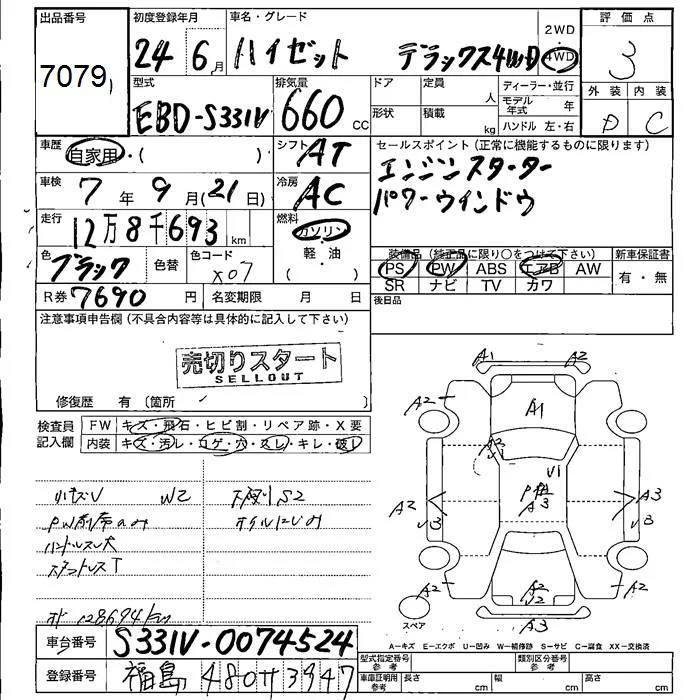 出品番号 初度登録年月 車名・グレード 評価点
7079 24年6月 ハイゼット デラックス4WD 2WD・4WD 3
型式 排気量 ドア 定員 人 ディーラー・並行 外装 内装
EBD-S331V 660cc 形状 積載 kg モデル年式 年 ハンドル 左・右 D C
車歴 自家用・( ) シフト AT セールスポイント(正常に機能するものに限ります)
車検 7年9月(21日) 冷房 AC エンジンスターター
走行 12万8千693km 燃料 ガソリン パワーウインドウ
色 ブラック 色替 色コード X07 軽・油 ( ) 装備品(純正品に限り○をつけて下さい) 新車保証書
PS PW ABS エアB AW 有・無
R券 7690円 名変期限 月 日 SR ナビ TV カワ
後日品
注意事項申告欄(不具合内容等は具体的に記入して下さい)
売切りスタート
SELLOUT
修復歴 有 (箇所 )
検査員記入欄 FW キズ・飛石・ヒビ割・リペア跡・X要
内装 キズ・汚レ・コゲ・穴・スレ・キレ・破レ
A1 A2
A2 A1 A2
V1
小キズV W2 下廻りS2
PW前席のみ オイルにじみ
ハンドルスレ大
A2 A3 A3
V3 V3
A2 A2 A2
A3
128694
スペア
A=キズ E=エクボ U=凹み W=補修跡 S=サビ C=腐食 XX=交換済
車台番号 S331V-0074524
登録番号 福島 480 サ 3947
型式指定番号 参考 類別区分番号 参考
車庫証明用 参考 長さ cm 幅 cm 高さ cm